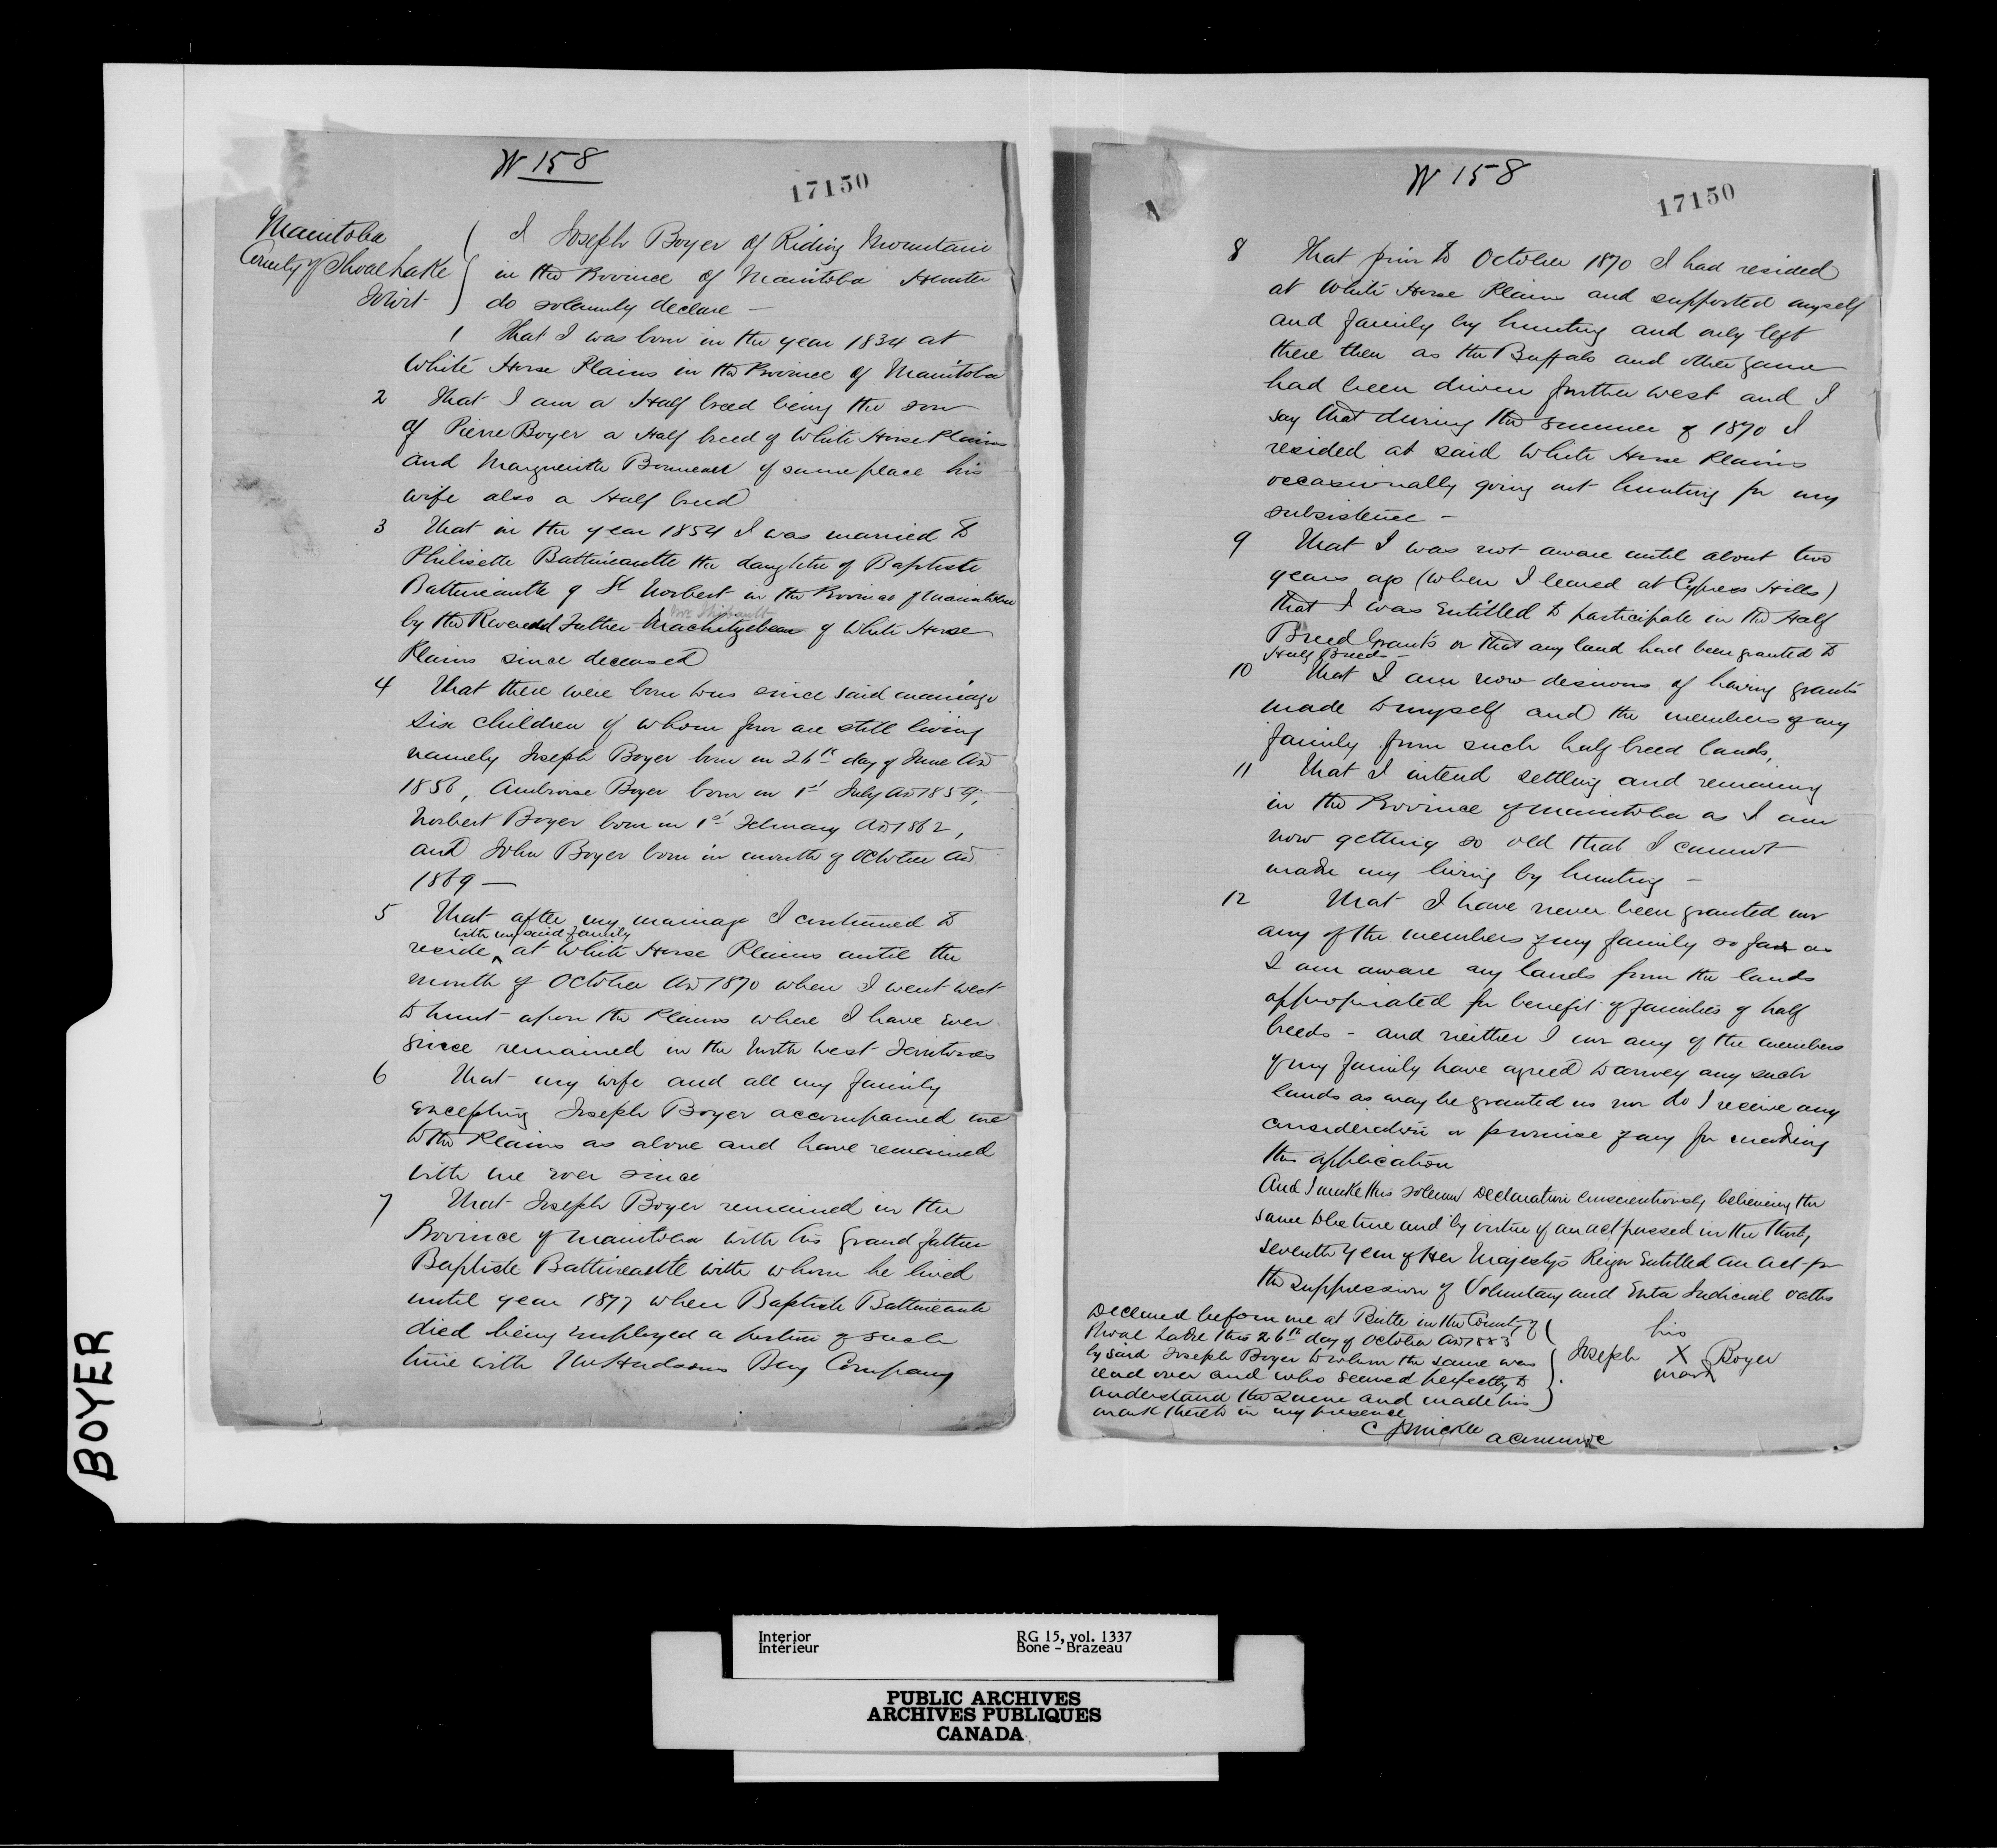 W 158
17150
Manitoba
County of Shoal Lake
To wit
I Joseph Boyer of Riding Mountain
in the Province of Manitoba Hunter
do solemnly declare —
1 That I was born in the year 1834 at
White Horse Plains in the Province of Manitoba
2 That I am a Half breed being the son
of Pierre Boyer a Half breed of White Horse Plains
and Marguerite Bonneau of same place his
wife also a Half breed
3 That in the year 1854 I was married to
Philisette Battineautte the daughter of Baptiste
Battineautte of St Norbert in the Province of Manitoba
by the Reverend Father of White Horse
Plains since deceased
4 That there were born to us since said marriage
six children of whom four are still living
namely Joseph Boyer born on 26th day of June AD
1856, Ambroise Boyer born on 1st July AD 1859,
Norbert Boyer born on 1st February AD 1862,
and John Boyer born in month of October AD
1869 —
5 That after my marriage I continued to
with my said family
reside ^ at White Horse Plains until the
month of October AD 1870 when I went west
to hunt upon the Plains where I have ever
since remained in the North West Territories
6 That my wife and all my family
excepting Joseph Boyer accompanied me
to the Plains as above and have remained
with me ever since
7 That Joseph Boyer remained in the
Province of Manitoba with his grand father
Baptiste Battineautte with whom he lived
until year 1877 when Baptiste Battineautte
died being employed a portion of such
time with the Hudsons Bay Company
W 158
17150
8 That prior to October 1870 I had resided
at White Horse Plains and supported myself
and family by hunting and only left
there then as the Buffalo and other game
had been driven further west and I
say that during the summer of 1870 I
resided at said White Horse Plains
occasionally going out hunting for my
subsistence —
9 That I was not aware until about two
years ago (when I learned at Cypress Hills)
that I was entitled to participate in the Half
Breed Grants or that any land had been granted to
Half Breeds —
10 That I am now desirous of having grants
made to myself and the members of my
family from such half breed lands,
11 That I intend settling and remaining
in the Province of Manitoba as I am
now getting so old that I cannot
make my living by hunting —
12 That I have never been granted nor
any of the members of my family so far as
I am aware any lands from the lands
appropriated for benefit of families of half
breeds — and neither I nor any of the members
of my family have agreed to convey any such
lands as may be granted us nor do I receive any
consideration or promise of any for making
this application
And I make this solemn Declaration conscientiously believing the
same to be true and by virtue of an act passed in the thirty
seventh year of Her Majestys Reign Entitled an Act for
the suppression of Voluntary and Extra Judicial oaths
Declared before me at Birtle in the County of
Shoal Lake this 26th day of October AD 1883
by said Joseph Boyer to whom the same was
read over and who seemed perfectly to
understand the same and made his
mark thereto in my presence
his
Joseph X Boyer
mark
BOYER
Interior
Intérieur
RG 15, vol. 1337
Bone - Brazeau
PUBLIC ARCHIVES
ARCHIVES PUBLIQUES
CANADA